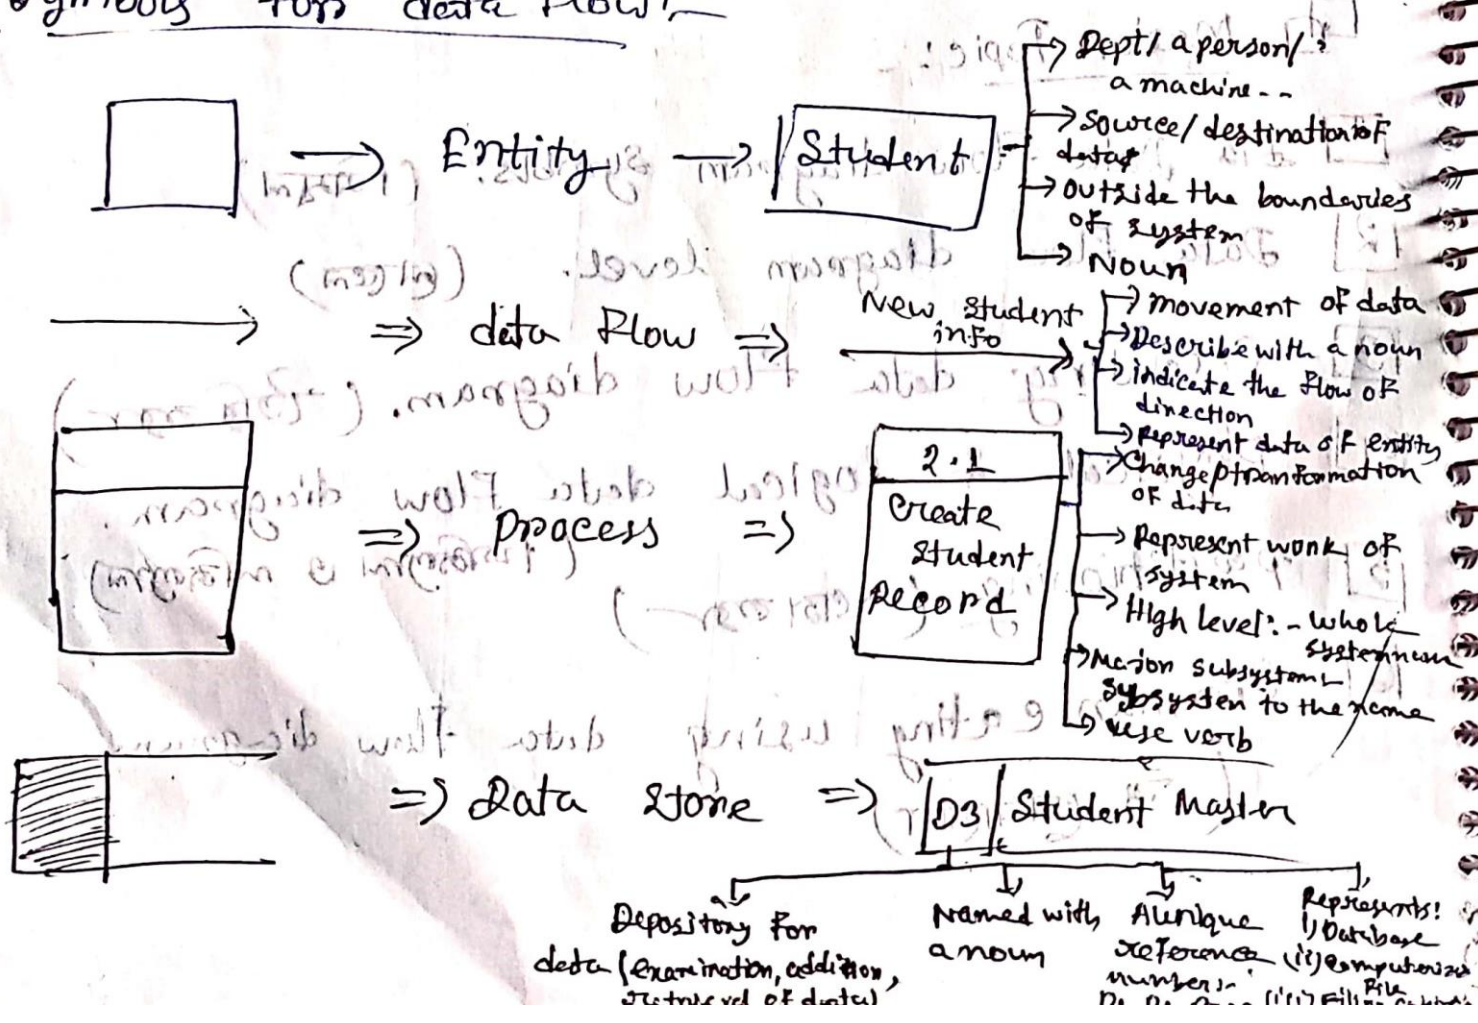 Symbols for data flow:-
Entity
Student
Dept/ a person/
a machine--
Source/ destination of
data
outside the boundaries
of system
Noun
data flow
New student
info
movement of data
Describe with a noun
indicate the flow of
direction
Represent data of entity
process
2.1
Create
student
Record
Change/transformation
of data
Represent work of
system
High level:- whole
system
Major subsystem
Subsystem to the name
use verb
Data store
D3 Student Master
Depository for
data (examination, addition,
retrieval of data)
Named with
a noun
A unique
reference
number:-
Represents:
i) Database
(ii) Computerize
File
diagram level.
data flow diagram.
logical data flow diagram.
using data flow diagram